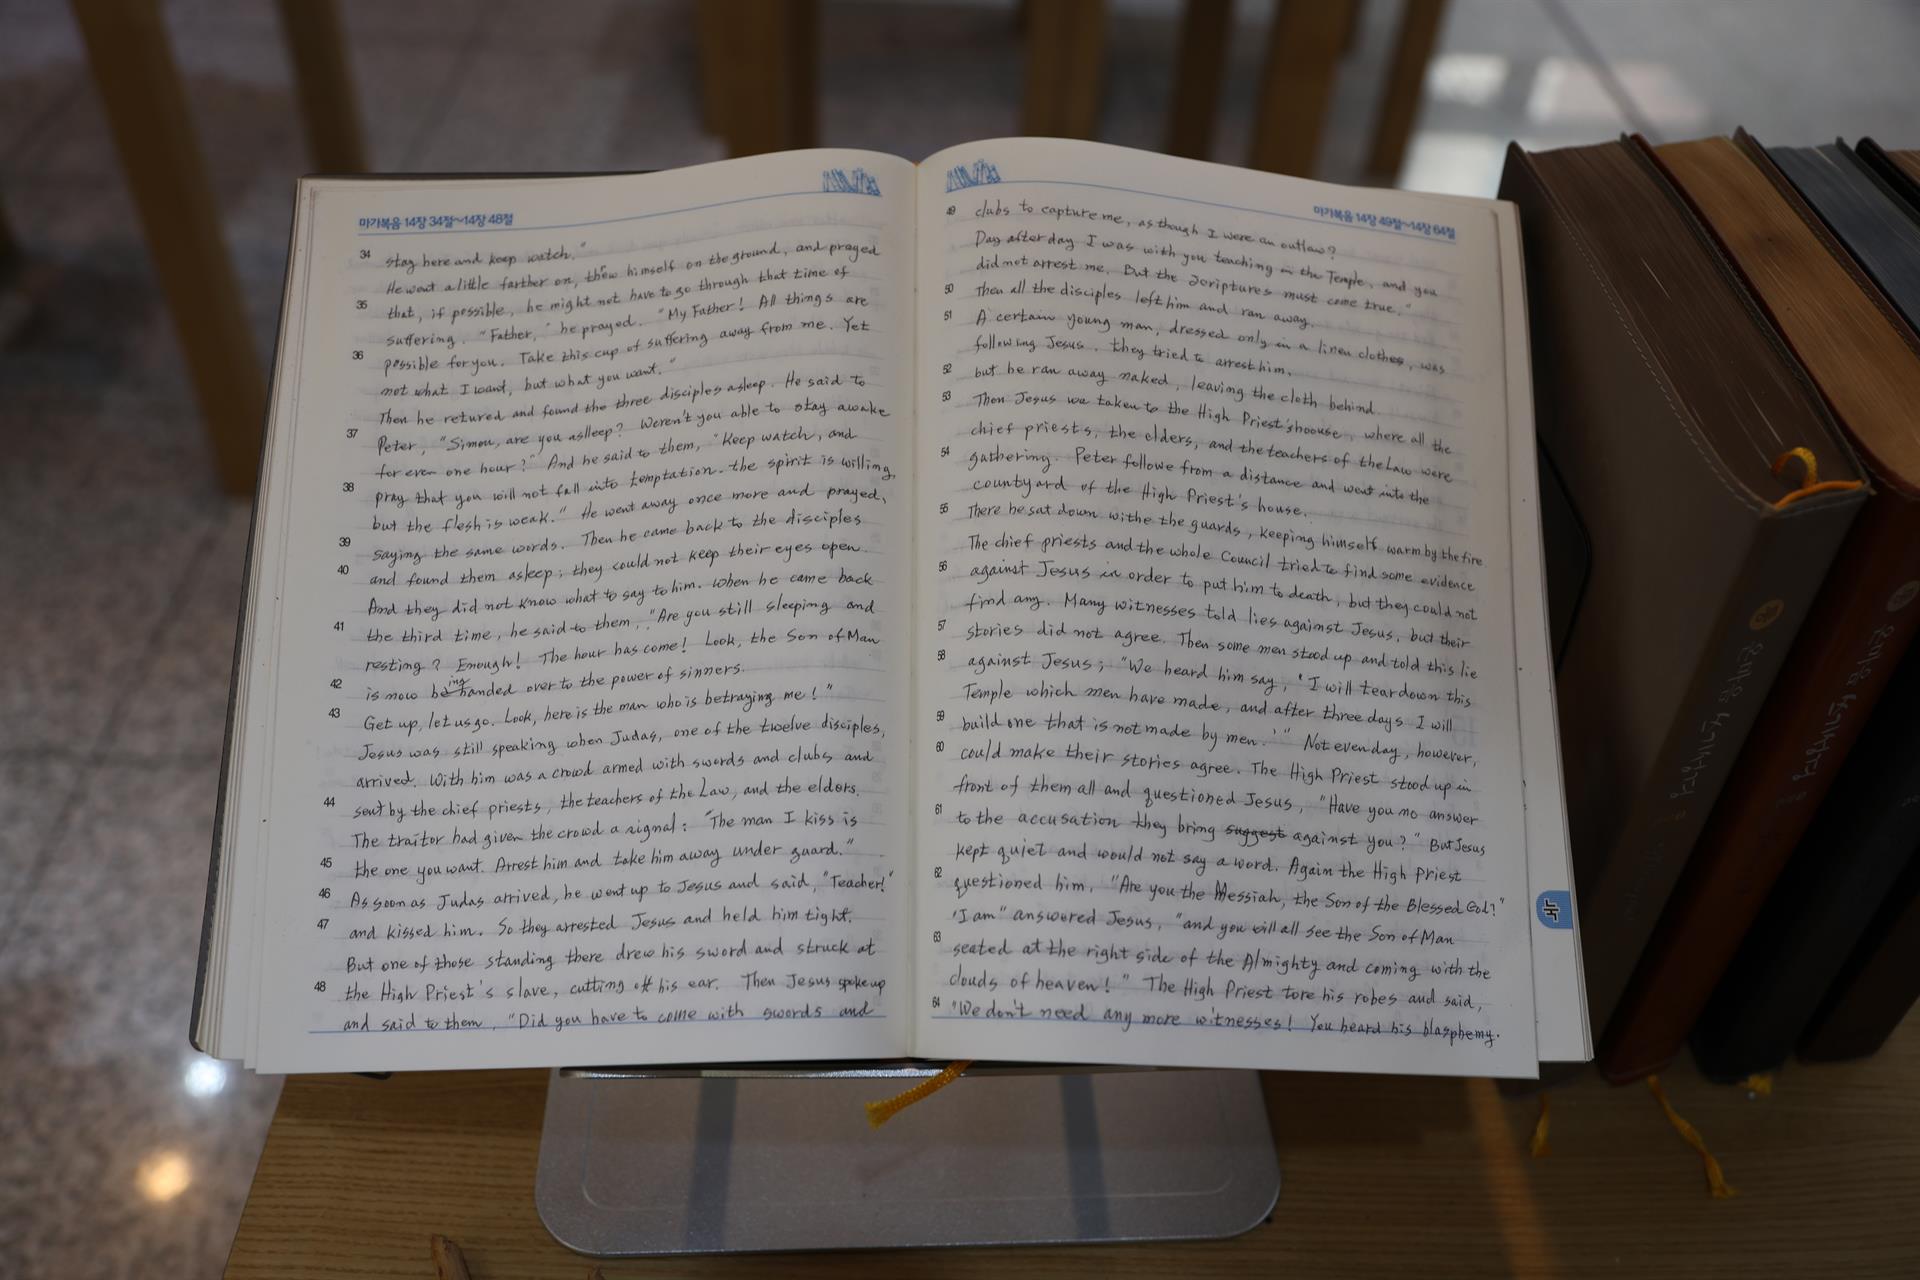 마가복음 14장 34절~14장 48절
34 stay here and keep watch."
He went a little farther on, thew himself on the ground, and prayed
35 that, if possible, he might not have to go through that time of
suffering. "Father," he prayed. "My Father! All things are
36 possible for you. Take this cup of suffering away from me. Yet
not what I want, but what you want."
Then he retured and found the three disciples asleep. He said to
37 Peter, "Simon, are you aslleep? Weren't you able to stay awake
for even one hour?" And he said to them, "Keep watch, and
38 pray that you will not fall into temptation. the spirit is willing,
but the flesh is weak." He went away once more and prayed,
39 saying the same words. Then he came back to the disciples
40 and found them asleep; they could not keep their eyes open.
And they did not know what to say to him. When he came back
41 the third time, he said to them, "Are you still sleeping and
resting? Enough! The hour has come! Look, the Son of Man
42 is now being handed over to the power of sinners.
43 Get up, let us go. Look, here is the man who is betraying me!"
Jesus was still speaking when Judas, one of the twelve disciples,
arrived. With him was a crowd armed with swords and clubs and
44 sent by the chief priests, the teachers of the Law, and the elders.
The traitor had given the crowd a signal: "The man I kiss is
45 the one you want. Arrest him and take him away under guard."
46 As soon as Judas arrived, he went up to Jesus and said, "Teacher!"
47 and kissed him. So they arrested Jesus and held him tight.
But one of those standing there drew his sword and struck at
48 the High Priest's slave, cutting off his ear. Then Jesus spoke up
and said to them, "Did you have to come with swords and
마가복음 14장 49절~14장 64절
49 clubs to capture me, as though I were an outlaw?
Day after day I was with you teaching in the Temple, and you
did not arrest me. But the Scriptures must come true."
50 Then all the disciples left him and ran away.
51 A certain young man, dressed only in a linen clothes, was
following Jesus. they tried to arrest him.
52 but he ran away naked, leaving the cloth behind.
53 Then Jesus wa taken to the High Priest'shoouse, where all the
chief priests, the elders, and the teachers of the Law were
54 gathering. Peter followe from a distance and went into the
countyard of the High Priest's house.
55 There he sat down withe the guards, keeping himself warm by the fire
The chief priests and the whole Council tried to find some evidence
56 against Jesus in order to put him to death, but they could not
find any. Many witnesses told lies against Jesus, but their
57 stories did not agree. Then some men stood up and told this lie
58 against Jesus; "We heard him say, 'I will tear down this
Temple which men have made, and after three days I will
59 build one that is not made by men.'" Not even day, however,
60 could make their stories agree. The High Priest stood up in
front of them all and questioned Jesus, "Have you no answer
61 to the accusation they bring suggest against you?" But Jesus
kept quiet and would not say a word. Again the High Priest
62 questioned him, "Are you the Messiah, the Son of the Blessed God?"
"I am" answered Jesus, "and you will all see the Son of Man
63 seated at the right side of the Almighty and coming with the
clouds of heaven!" The High Priest tore his robes and said,
64 "We don't need any more witnesses! You heard his blasphemy.
눅